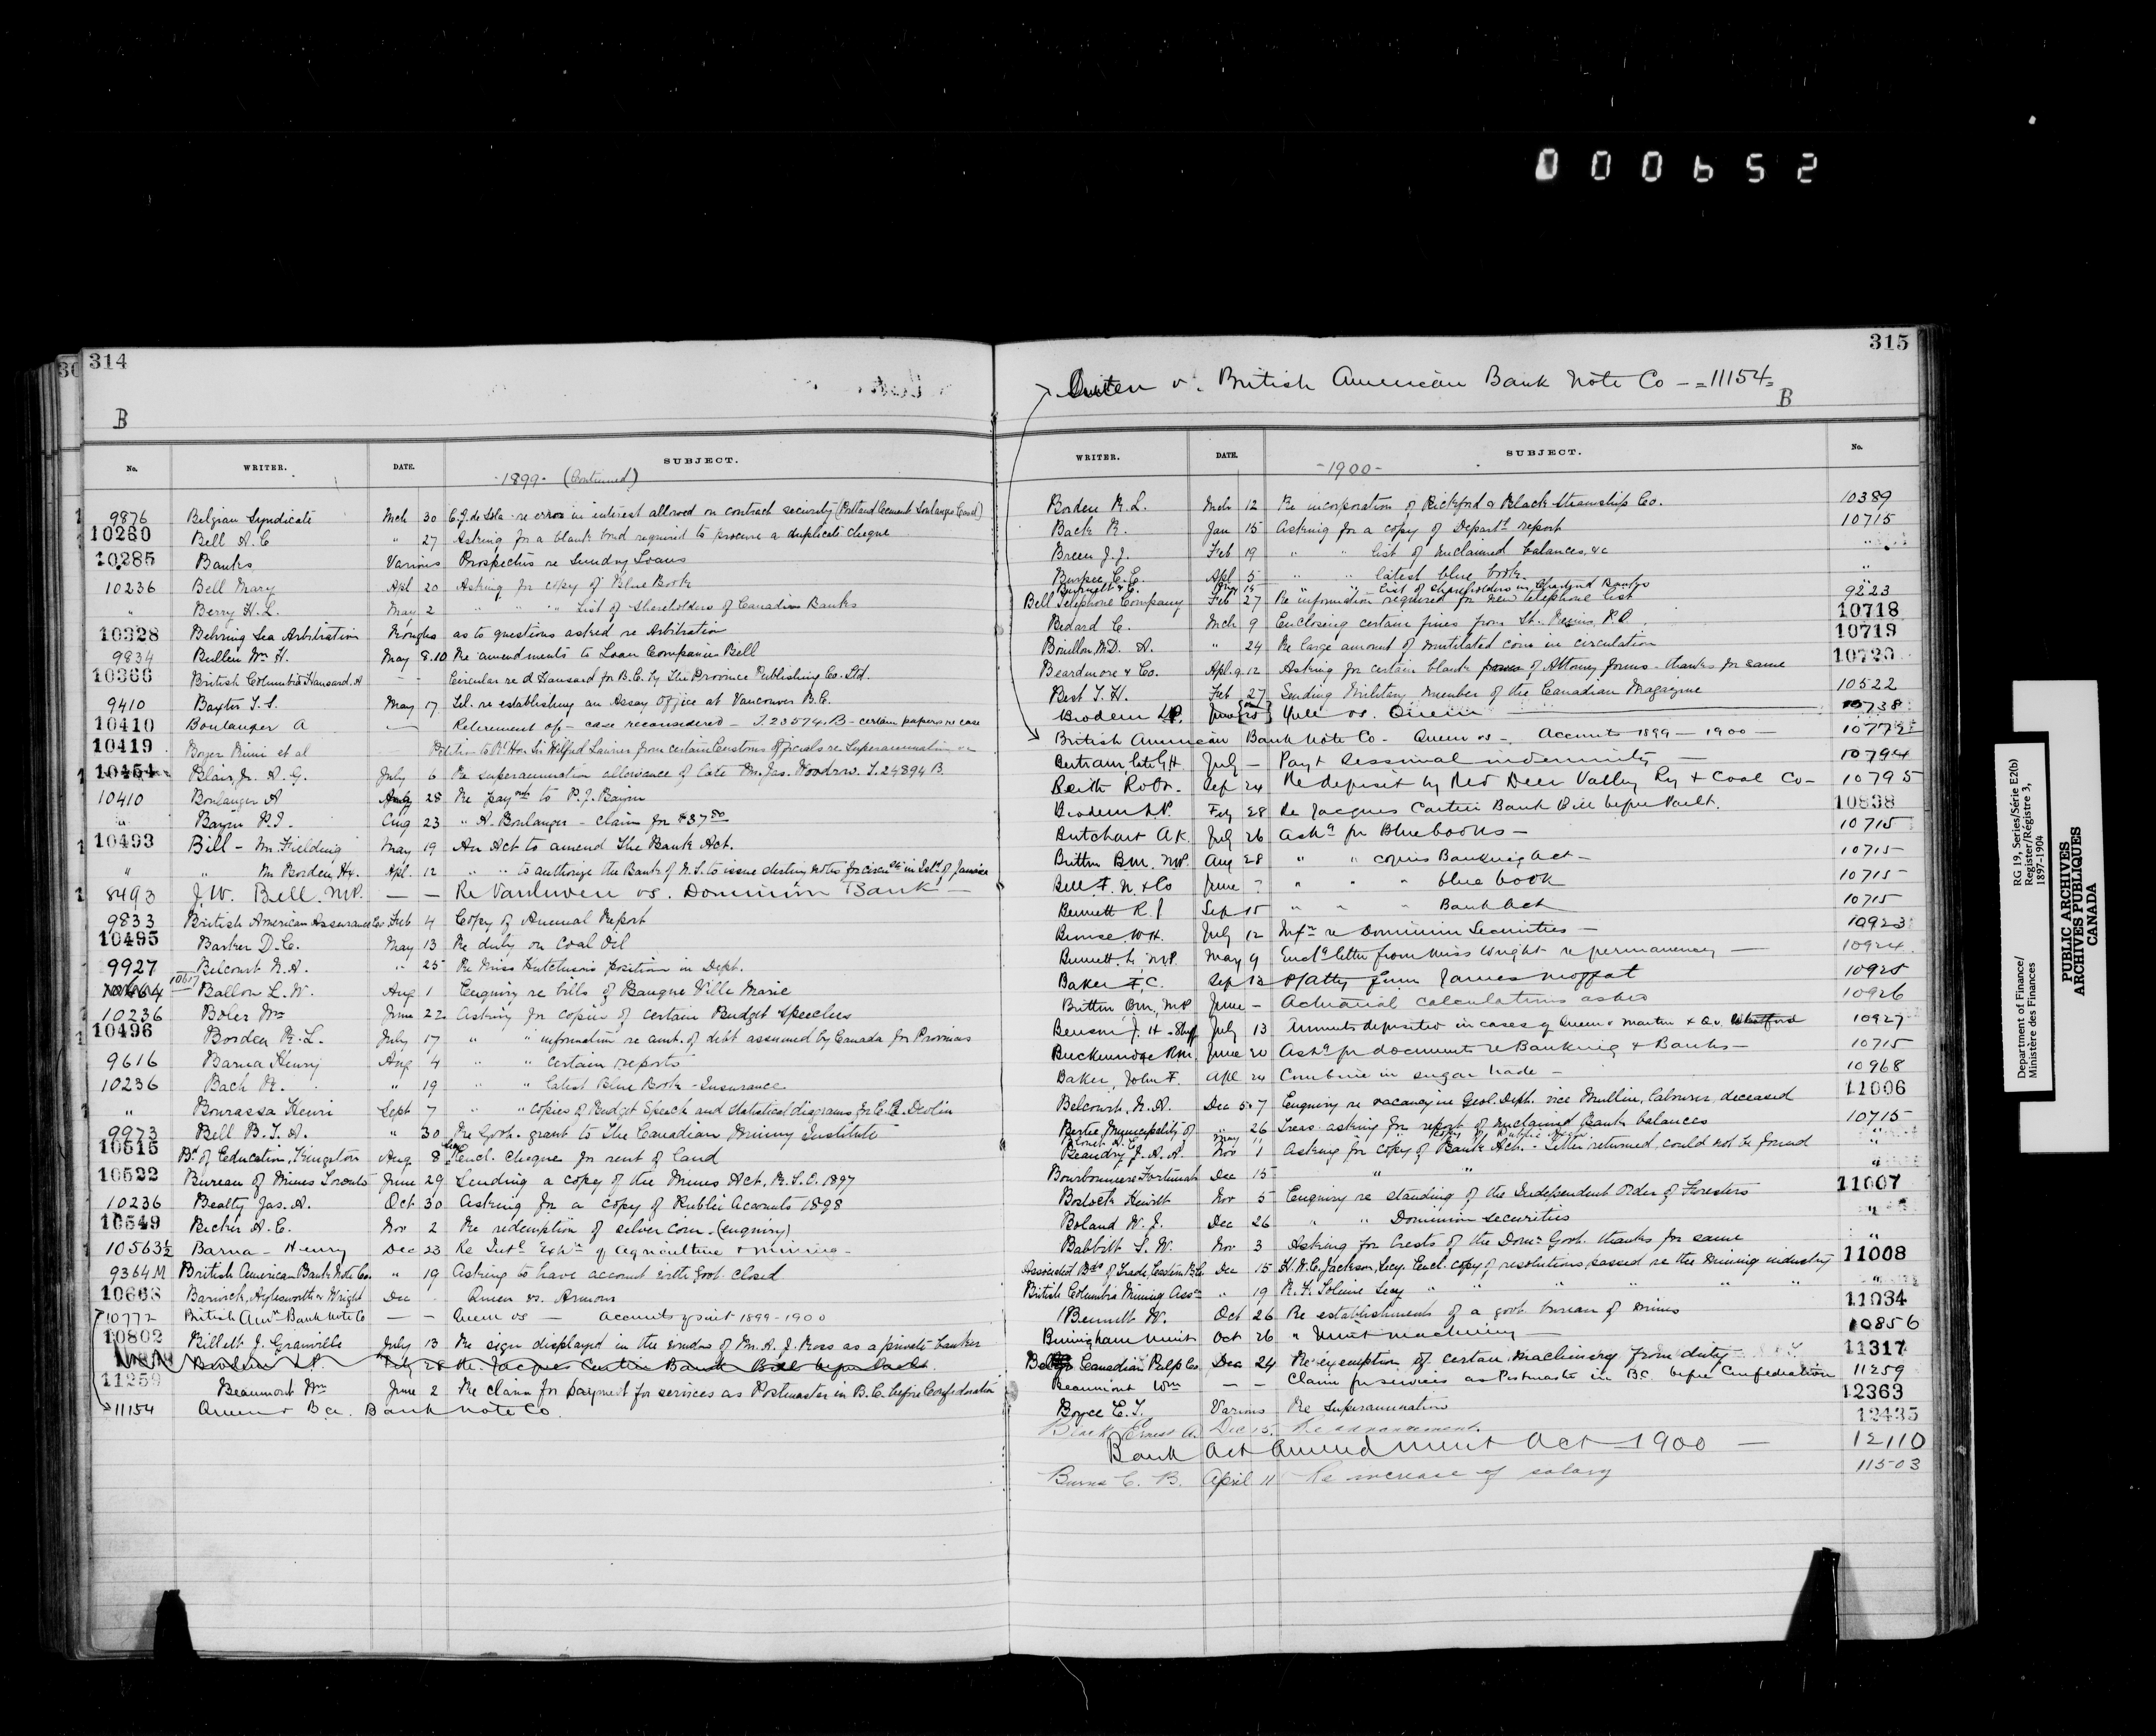 000652
314
B
No. WRITER. DATE. SUBJECT.
-1899- (Continued)
9876 Belgian Syndicate Mch 30 C.J. de Sola re error in interest allowed on contract security (Portland Cement Soulanges Canal)
10260 Bell A.C " 27 Asking for a blank bond required to procure a duplicate cheque
10285 Banks Various Prospectus re Sundry Loans
10236 Bell Mary Apl 20 Asking for copy of Blue Book
" Berry H.L. May 2 " " " List of Shareholders of Canadian Banks
10328 Behring Sea Arbitration as to questions asked re Arbitration
9834 Bullen Wm H. May 8.10 Re amendments to Loan Companies Bill
10366 British Columbia Hansard. A — — Circular re a Hansard for B.C. by The Province Publishing Co. Ltd.
9410 Baxter T.S. May 17 Tel. re establishing an Assay Office at Vancouver B.C.
10410 Boulanger A — Retirement of - case reconsidered - T.23574.B - certain papers re case
10419 Boyer Rimi et al Petition to Rt Hon. Sir Wilfred Laurier from certain Customs officials re Superannuation
10454 Blair, Jr. A.G. July 6 Re superannuation allowance of late Mr. Jas. Woodrow. T.24894 B.
10410 Boulanger A Aug 28 Re paymt to P.J. Bazin
" Bazin P.J. Aug 23 " A. Boulanger - claim for $37.50
10493 Bill - Mr. Fielding May 19 An Act to amend The Bank Act.
" " Mr Borden, Hx. Apl. 12 " " to authorize the Bank of N.S. to issue sterling notes for circn in Isld of Jamaica
8493 J.W. Bell. MP. — — Re Vanluven vs. Dominion Bank —
9833 British American Assurance Co Feb 4 Copy of Annual Report
10495 Barker D.C. May 13 Re duty on Coal Oil
9927 Belcourt N.A. " 25 Re Miss Hutchison's position in Dept.
10617 Ballon L.W. Aug 1 Enquiry re bills of Banque Ville Marie
10236 Boles Wm June 22 Asking for copies of certain Budget Speeches
10496 Borden R.L. July 17 " " information re amt. of debt assumed by Canada for Provinces
9616 Barna Henry Aug 4 " " certain reports
10236 Bach R. " 19 " " latest Blue Book - Insurance
" Bourassa Henri Sept 7 " " copies of Budget Speech and Statistical diagrams for C.R. Devlin
9973 Bell B.T.A. " 30 Re Govt. grant to The Canadian Mining Institute
10515 Bd of Education, Kingston Aug 8 Encl. cheque for rent of land
10522 Bureau of Mines Toronto June 29 Sending a copy of the Mines Act, R.S.O. 1897
10236 Beatty Jas. A. Oct 30 Asking for a copy of Public Accounts 1898
10549 Becher A.C. Nov 2 Re redemption of silver coin. (enquiry)
10563½ Barna - Henry Dec 23 Re Intl Exhn of Agriculture & mining -
9364M British American Bank Note Co. " 19 Asking to have account with Govt. closed
10668 Barwick, Aylesworth & Wright Dec - Queen vs. Armour
10772 British Amn Bank Note Co — — Queen vs — Accounts point 1899-1900
10802 Billett J. Granville July 13 Re sign displayed in the window of Mr. A.J. Ross as a private banker
Brodeur L.P. July 28 Re. Jacques Cartier Bank Bill before Parlt.
11259 Beaumont Wm June 2 Re claim for payment for services as Postmaster in B.C. before Confederation
11154 Queen v B.A. Bank Note Co.
315
Queen v. British American Bank Note Co - =11154=
B
WRITER. DATE. SUBJECT. No.
-1900-
Borden R.L. Mch 12 Re incorporation of Pickford & Black Steamship Co. 10389
Back R. Jan 15 Asking for a copy of Departl report 10715
Breen J.J. Feb 19 " " list of unclaimed balances, &c "
Burpee C.E. Apl 5 " " latest blue book "
Burnett & C. May 14 " " List of Shareholders in Chartered Banks
Bell Telephone Company Feb 27 Re information required for new telephone list 9223
Bedard C. Mch 9 Enclosing certain fines from St. Regis, P.Q. 10718
Bouillon, M.D. A. " 24 Re large amount of mutilated coin in circulation 10719
Beardmore & Co. Apl. 9.12 Asking for certain blank Power of Attorney forms - thanks for same 10720
Best T.H. Feb 27 Sending Military number of the Canadian Magazine 10522
Brodeur L.P. June 25 Yule vs. Queen 10738
British American Bank Note Co - Queen vs - Accounts 1899 - 1900 — 10772
Bertram late G.H. July — Payt Sessional indemnity — 10794
Beith Robt. Sep 24 Re deposit by Red Deer Valley Ry & Coal Co - 10795
Brodeur L.P. Feby 28 Re Jacques Cartier Bank Bill before Parlt. 10838
Butchart A.K. July 26 Askg for Bluebooks — 10715
Britton B.M. MP. Aug 28 " " copies Banking Act — 10715
Bell F.N. & Co June ? " " " blue book 10715
Bennett R.J Sep 15 " " " Bank Act 10715
Bruise W.H. July 12 Infn re Dominion Securities — 10923
Bennett L. MP. May 9 Encl letter from Miss Wright re permanency — 10924
Baker F.C. Sep 13 Matty from James Moffat 10925
Britton B.M., MP June — Actuarial calculations asked 10926
Benson J.H - Shff July 13 Amounts deposited in cases of Queen v Martin & Q v. 10927
Breckenridge R.M. June 20 Askg for documents re Banking & Banks — 10715
Baker, John F. Apl 24 Combine in sugar trade — 10968
Belcourt, N.A. Dec 5.7 Enquiry re vacancy in Geol. Dept. vice Mullin, labourer, deceased 11006
Bertie, Municipality of " 26 Treas. asking for report of unclaimed Bank balances 10715
Beaudry J.A.A. Nov 1 Asking for copy of Bank Act. - Letter returned, could not be found "
Bourbonniere Fortunat Dec 15 " " "
Bostock Hewitt Nov 5 Enquiry re standing of the Independent Order of Foresters 11007
Boland W.J. Dec 26 " " Dominion Securities "
Babbitt L.W. Nov 3 Asking for Crests of the Domn Govt. thanks for same "
Associated Bds of Trade, Eastern B.C. Dec 15 H.W.C. Jackson, Secy. Encl. copy of resolutions passed re the mining industry 11008
British Columbia Mining Assn " 19 Secy " " " " " " "
Bennett W. Oct 26 Re establishment of a govt. bureau of mines 11034
Birmingham Mint Oct 26 " Mint machinery — 10856
Canadian Pulp Co. Dec 24 Re exemption of certain machinery from duty 11317
Beaumont Wm — — Claim for services as Postmaster in B.C. before Confederation 11259
Boyce E.T. Various Re Superannuation 12363
Black Ernest A. Dec 15. Re advancement. 12435
Bank Act Amendment Act 1900 — 12110
Burns C.B. April 11 Re increase of salary 11503
Department of Finance/
Ministère des Finances
RG 19, Series/Série E2(b)
Register/Régistre 3,
1897-1904
PUBLIC ARCHIVES
ARCHIVES PUBLIQUES
CANADA